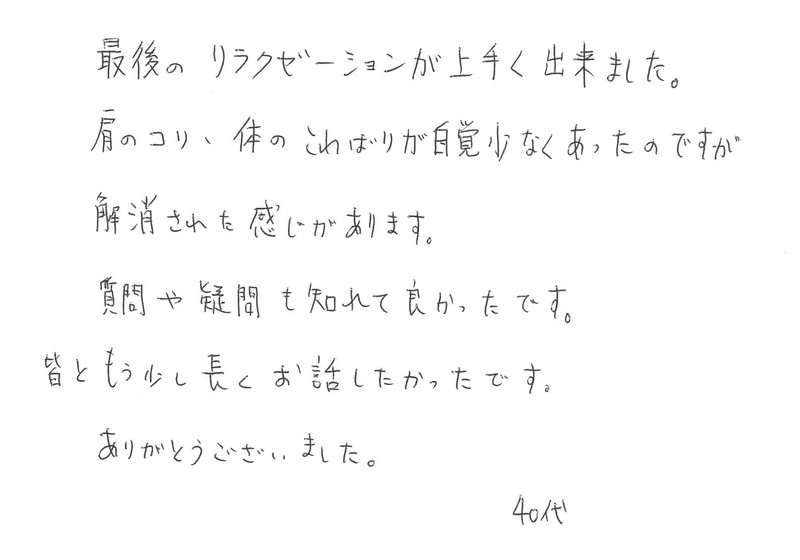 最後の リラクゼーションが上手く出来ました。
肩のコリ、体の こわばりが自覚少なくあったのですが
解消された感じがあります。
質問や疑問も知れて良かったです。
皆ともう少し長くお話したかったです。
ありがとうございました。
40代